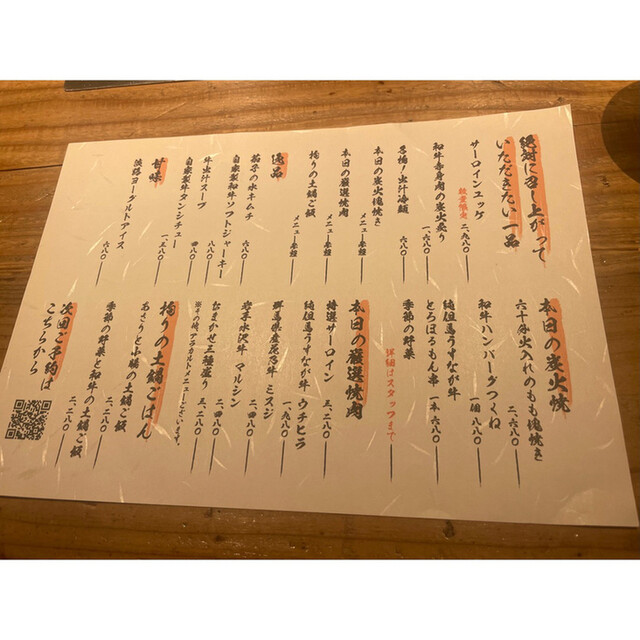 絶対に召し上がって
いただきたい一品
サーロインユッケ
数量限定 二、九八〇
和牛赤身肉の炭火炙り
一、六八〇
名物！出汁冷麺
六八〇
本日の炭火塊焼き
メニュー参照
本日の厳選焼肉
メニュー参照
拘りの土鍋ご飯
メニュー参照
逸品
茄子の水キムチ
自家製和牛ソフトジャーキー
牛出汁スープ
四八〇
自家製牛タンシチュー
一、三八〇
甘味
淡路ヨーグルトアイス
六八〇
本日の炭火焼
六十分火入れのもも塊焼き
二、六八〇
和牛ハンバーグつくね
一個 八八〇
純但馬うすなが牛
とろほるもん串 一本 六八〇
季節の野菜
詳細はスタッフまで
本日の厳選焼肉
特選サーロイン 三、二八〇
純但馬うすなが牛 ウチヒラ
一、九八〇
群馬県産尾花牛 ミスジ
二、二八〇
岩手水沢牛 マルシン
二、四八〇
おまかせ三種盛り 三、二八〇
※その他、アラカルトメニューございます。
拘りの土鍋ごはん
あさりと小腸の土鍋ご飯
二、二八〇
季節の野菜と和牛の土鍋ご飯
二、二八〇
次回ご予約は
こちらから